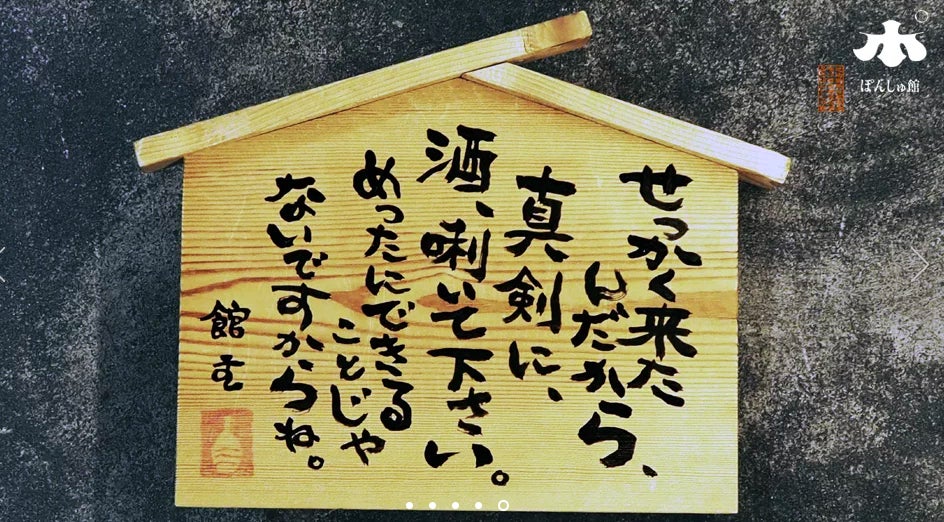 せっかく来た
んだから、
真剣に、
酒、唎いて下さい。
めったにできる
ことじゃ
ないですからね。
館主
ぽんしゅ館